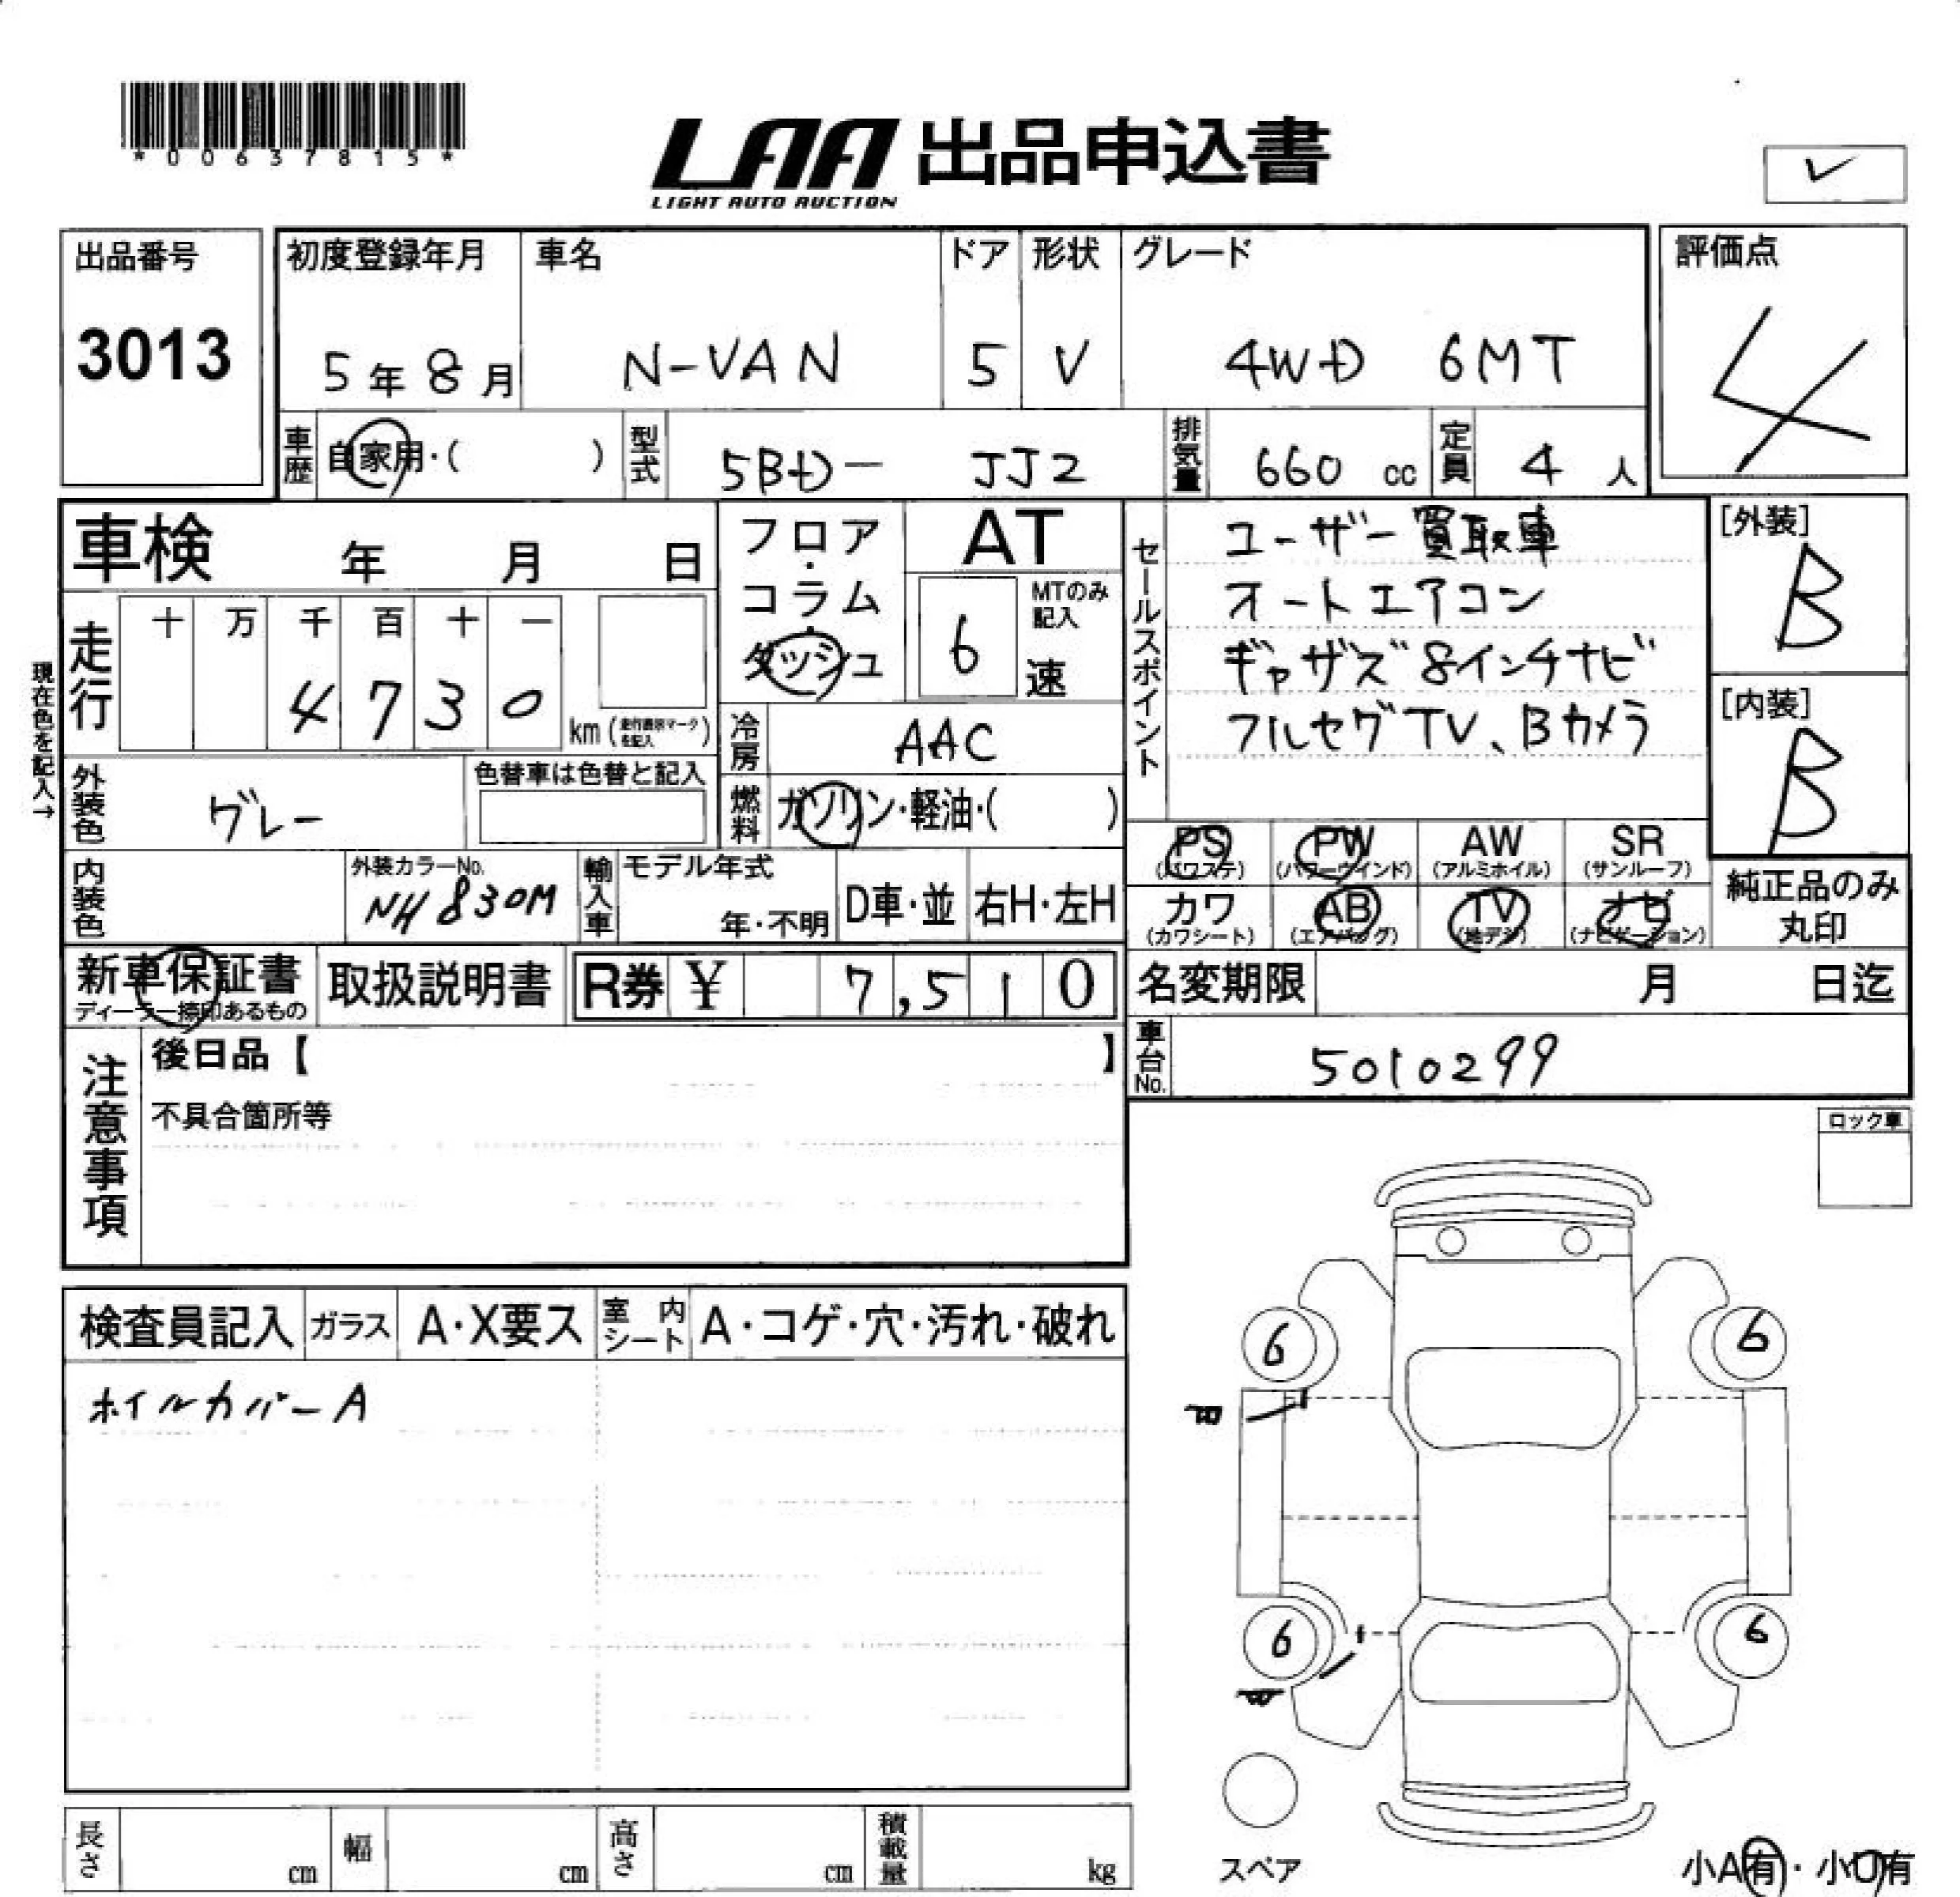 *00637815*
LAA 出品申込書
LIGHT AUTO AUCTION
✓
出品番号
3013
初度登録年月
5年8月
車名
N-VAN
ドア
5
形状
V
グレード
4WD 6MT
評価点
4
車歴 自家用・( )
型式 5BD- JJ2
排気量 660 cc
定員 4 人
車検 年 月 日
現在色を記入→
走行
十 万 千 百 十 一
4 7 3 0
km(走行表示マークを記入)
フロア・コラム・ダッシュ
AT
MTのみ記入
6 速
セールスポイント
ユーザー買取車
オートエアコン
ギャザズ8インチナビ
フルセグTV、Bカメラ
[外装]
B
[内装]
B
冷房 AAC
外装色 グレー
色替車は色替と記入
燃料 ガソリン・軽油・( )
内装色
外装カラーNo.
NH830M
輸入車
モデル年式
年・不明
D車・並
右H・左H
PS (パワステ)
PW (パワーウインド)
AW (アルミホイル)
SR (サンルーフ)
カワ (カワシート)
AB (エアバッグ)
TV (地デジ)
ナビ (ナビゲーション)
純正品のみ
丸印
新車保証書
ディーラー捺印あるもの
取扱説明書
R券 ¥ 7,510
名変期限 月 日迄
車台No. 5010299
注意事項
後日品【 】
不具合箇所等
ロック車
検査員記入
ガラス A・X要ス
室内シート A・コゲ・穴・汚れ・破れ
ホイルカバーA
6 6
6 6
スペア
長さ cm
幅 cm
高さ cm
積載量 kg
小A有・小U有